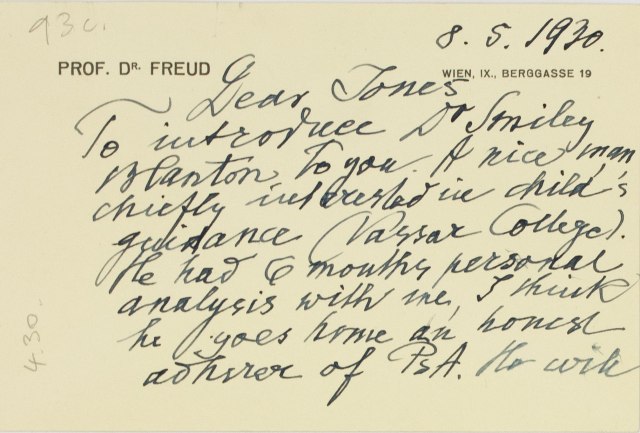 93c.
8. 5. 1930.
PROF. DR. FREUD
WIEN, IX., BERGGASSE 19
Dear Jones
To introduce Dr Smiley
Blanton to you. A nice man,
chiefly interested in child's
guidance (Vassar College).
He had 6 months personal
analysis with me, I think
he goes home an honest
adherer of PsA. He will
4.30.